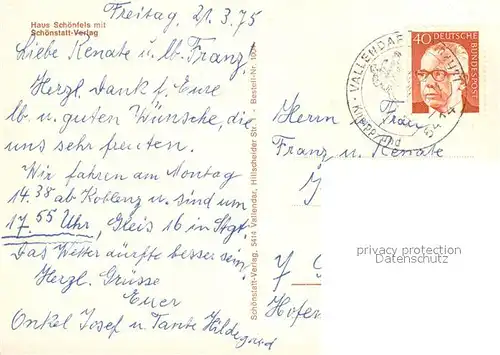 Haus Schönfels mit
Schönstatt-Verlag
Freitag 21.3.75
Liebe Renate u. lb. Franz!
Herzl. Dank f. Eure
lb. u. guten Wünsche, die
uns sehr freuten.
Wir fahren am Montag
14.38 ab Koblenz u. sind um
17.55 Uhr, Gleis 16 in Stgt.
Das Wetter dürfte besser sein.
Herzl. Grüsse
Euer
Onkel Josef u. Tante Hildegund
Schönstatt-Verlag, 5414 Vallendar, Hillscheider Str. Bestell-Nr.
VALLENDAR
40 DEUTSCHE
BUNDESPOST
Herrn
Frau
Franz u. Renate
privacy protection
Datenschutz
7